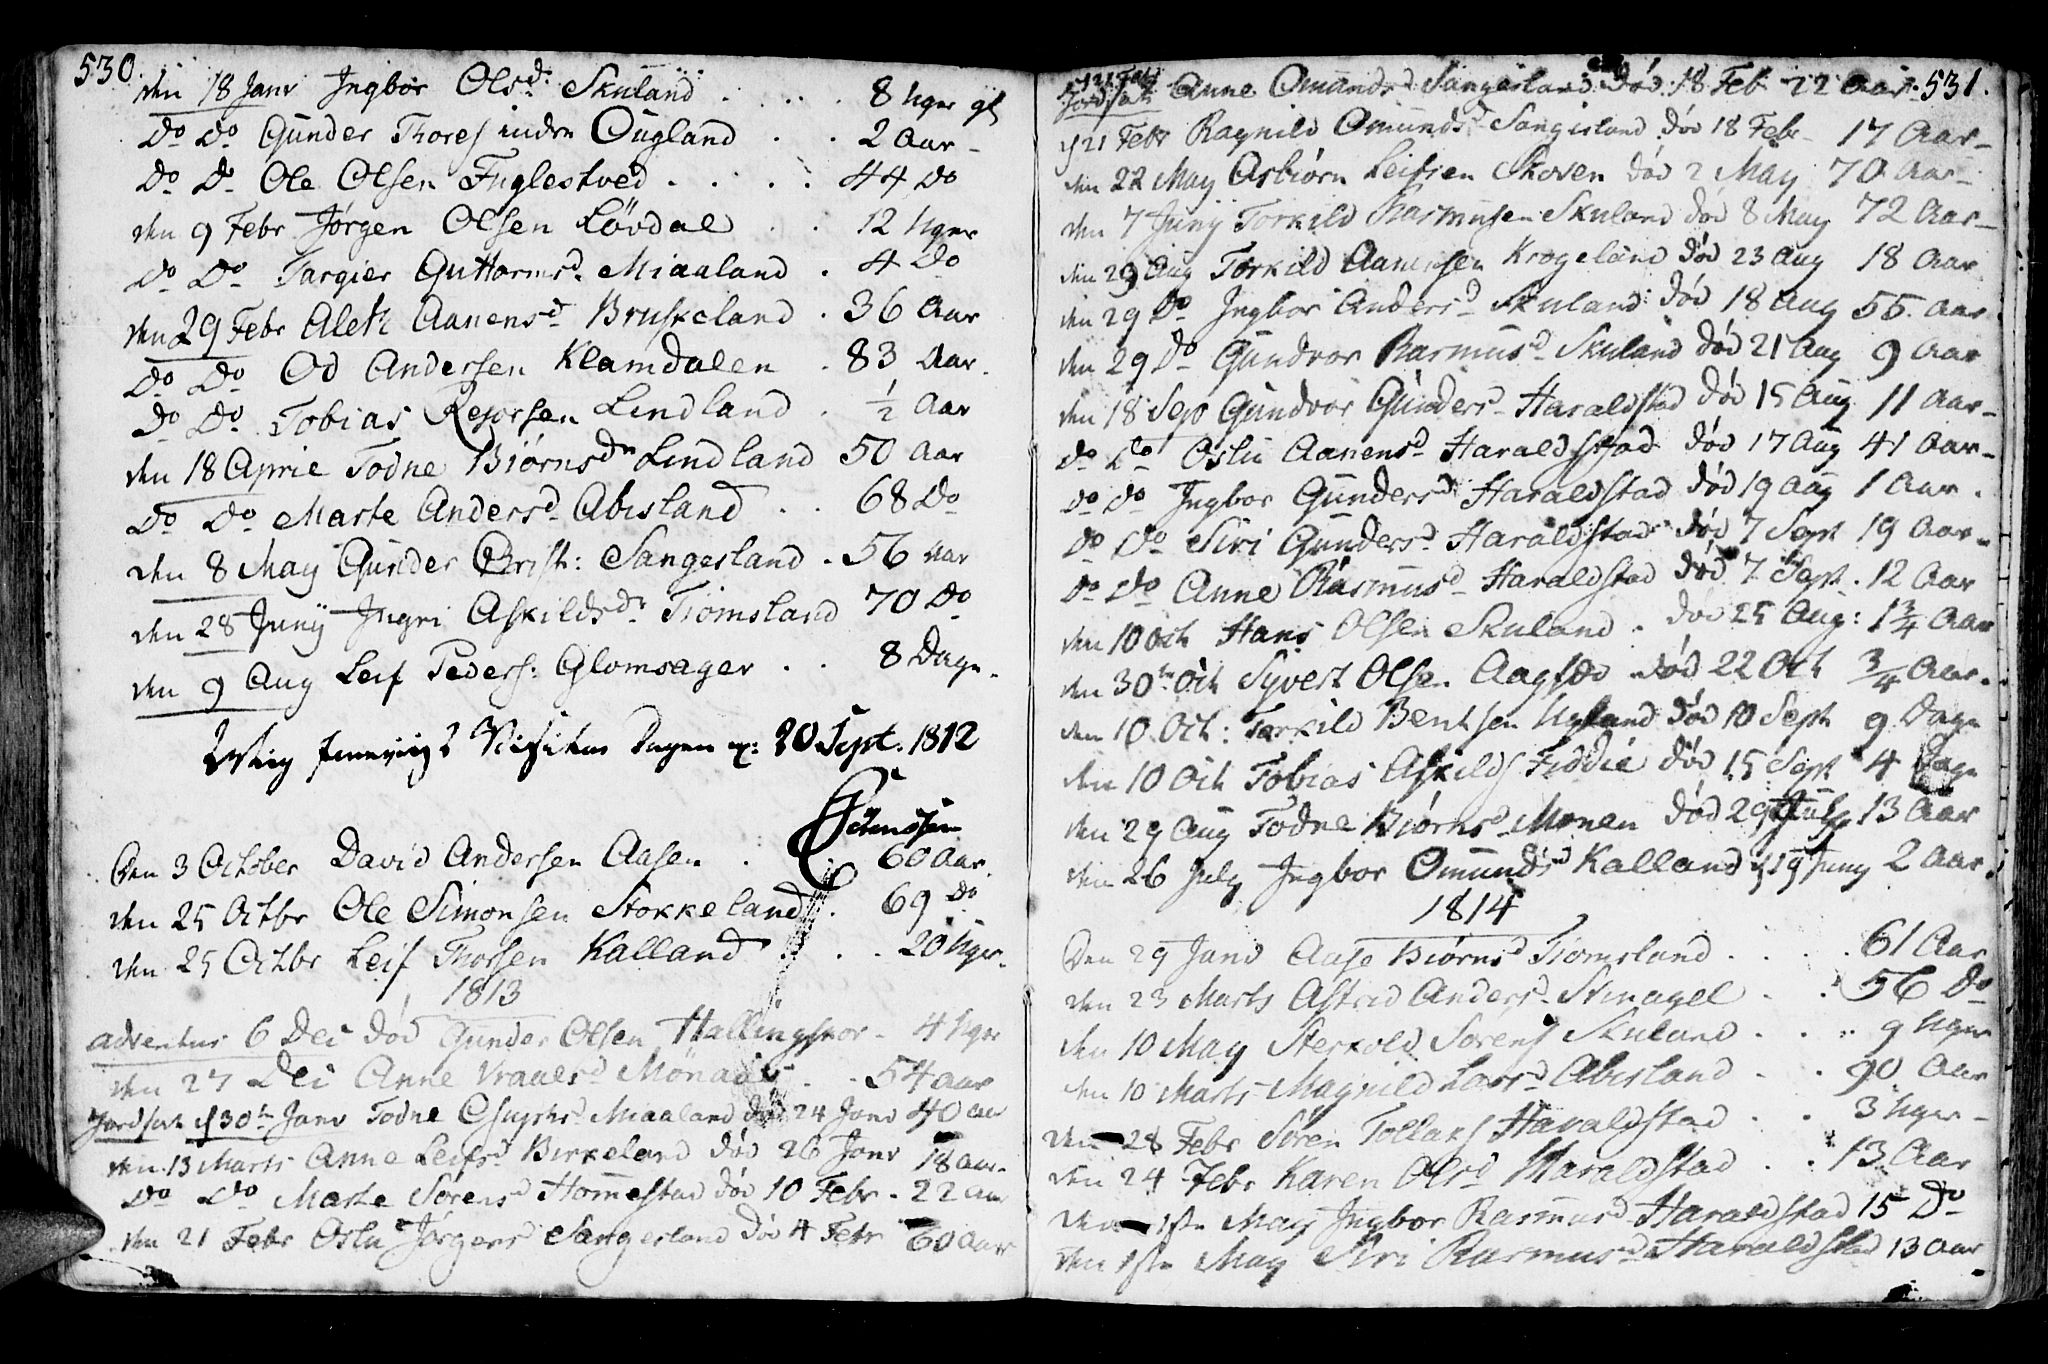 530.
den 18 Janr Ingbor Olsd. Skuland . . . . 8 Uger gl
Do Do Gunder Thores indre Ougland . . 2 Aar
Do Do Ole Olsen Fuglestved . . . . 44 Do
den 9 Febr Jørgen Olsen Løvdal . . 12 Uger
Do Do Targier Guttormsd. Miaaland . 4 Do
den 29 Febr Aleth Aanensd. Bruskeland . 36 Aar
Do Do Od Andersen Klamdalen . 83 Aar.
Do Do Tobias Reiersen Lindland . ½ Aar
den 18 April Todne Biørnsd. Lindland 50 Aar
Do Do Marte Andersd. Abisland . . 68 Do
den 8 May Gunder Crist: Sangesland . 56 Aar
den 28 Junij Ingri Askildsd. Tiomsland 70 Do
den 9 Aug Leif Peders: Glomsager . . 8 Dage.
Visitas Dagen 20 Sept. 1812
Den 3 October David Andersen Aasen . 60 Aar.
den 25 Octbr Ole Simonsen Stokkeland . 69 Do
den 25 Octbr Leif Thorsen Kalland . . . 20 Uger.
1813
adventus 6 Dec død Gunder Olsen Hallingskor - 4 Uger
den 27 Dec Anne Vraalsd . . 54 Aar
Jordsat d 30te Janr Todne Miaaland død 24 Janr 40 Aar
den 13 Marts Anne Leifsd Birkeland død 26 Janr 18 Aar.
Do Do Marte Sørensd Homestad død 10 Febr . 22 Aar
den 21 Febr Oslu Jørgensd Sangesland død 4 Febr 60 Aar
531.
Jordsat d 21 Feb Anne Omundsd Sangesland død 18 Feb 22 Aar
d 21 Febr Ragnild Omundsd Sangesland død 18 Febr 17 Aar
den 22 May Asbiørn Leifsen Skoven død 2 May 70 Aar
den 7 Junij Torkild Rasmusen Skuland død 8 May 72 Aar
den 29 Aug Torkild Aanensen Krogeland død 23 Aug 18 Aar
den 29 Do Ingbor Andersd Skuland død 18 Aug 55 Aar
den 29 Do Gundvor Rasmusd Skuland død 21 Aug 9 Aar
den 18 Sep Gundvor Gunders Haraldstad død 15 Aug 11 Aar
Do Do Oslu Aanensd Haraldstad død 17 Aug 41 Aar
Do Do Ingbor Gundersd Haraldstad død 19 Aug 1 Aar.
Do Do Siri Gundersd Haraldstad død 7 Sept 19 Aar
Do Do Anne Rasmusd Haraldstad død 7 Sept. 12 Aar
den 10 Och Hans Olsen Skuland . død 25 Aug: 1¾ Aar
den 30te Och Syvert Olsen død 22 Och ¾ Aar.
den 10 Och: Torkild Bentsen Ugland død 10 Sept 9 Dage
den 10 Och Tobias Askilds Fiddie død 15 Sept 4 Dage
den 29 Aug Todne Biørnsd Monen død 29 July 13 Aar
den 26 July Ingbor Omundsd Kalland d 19 Juny 2 Aar
1814
Den 29 Janr Aase Biørnsd Tiomsland . . . . 61 Aar
den 23 Marts Astrid Andersd Stenagel . . 56 Do
den 10 May Sterkold Sørens Skuland . . . . 9 Uger
den 10 Marts Magnild Larsd Abisland . . 90 Aar
den 28 Febr Søren Tollaks Haraldstad . . 3 Uger
den 24 Febr Karen Olsd Haraldstad . . 13 Aar
den 1ste May Ingbor Rasmusd Haraldstad 15 Do
den 1ste May Siri Rasmusd Haraldstad 13 Aar